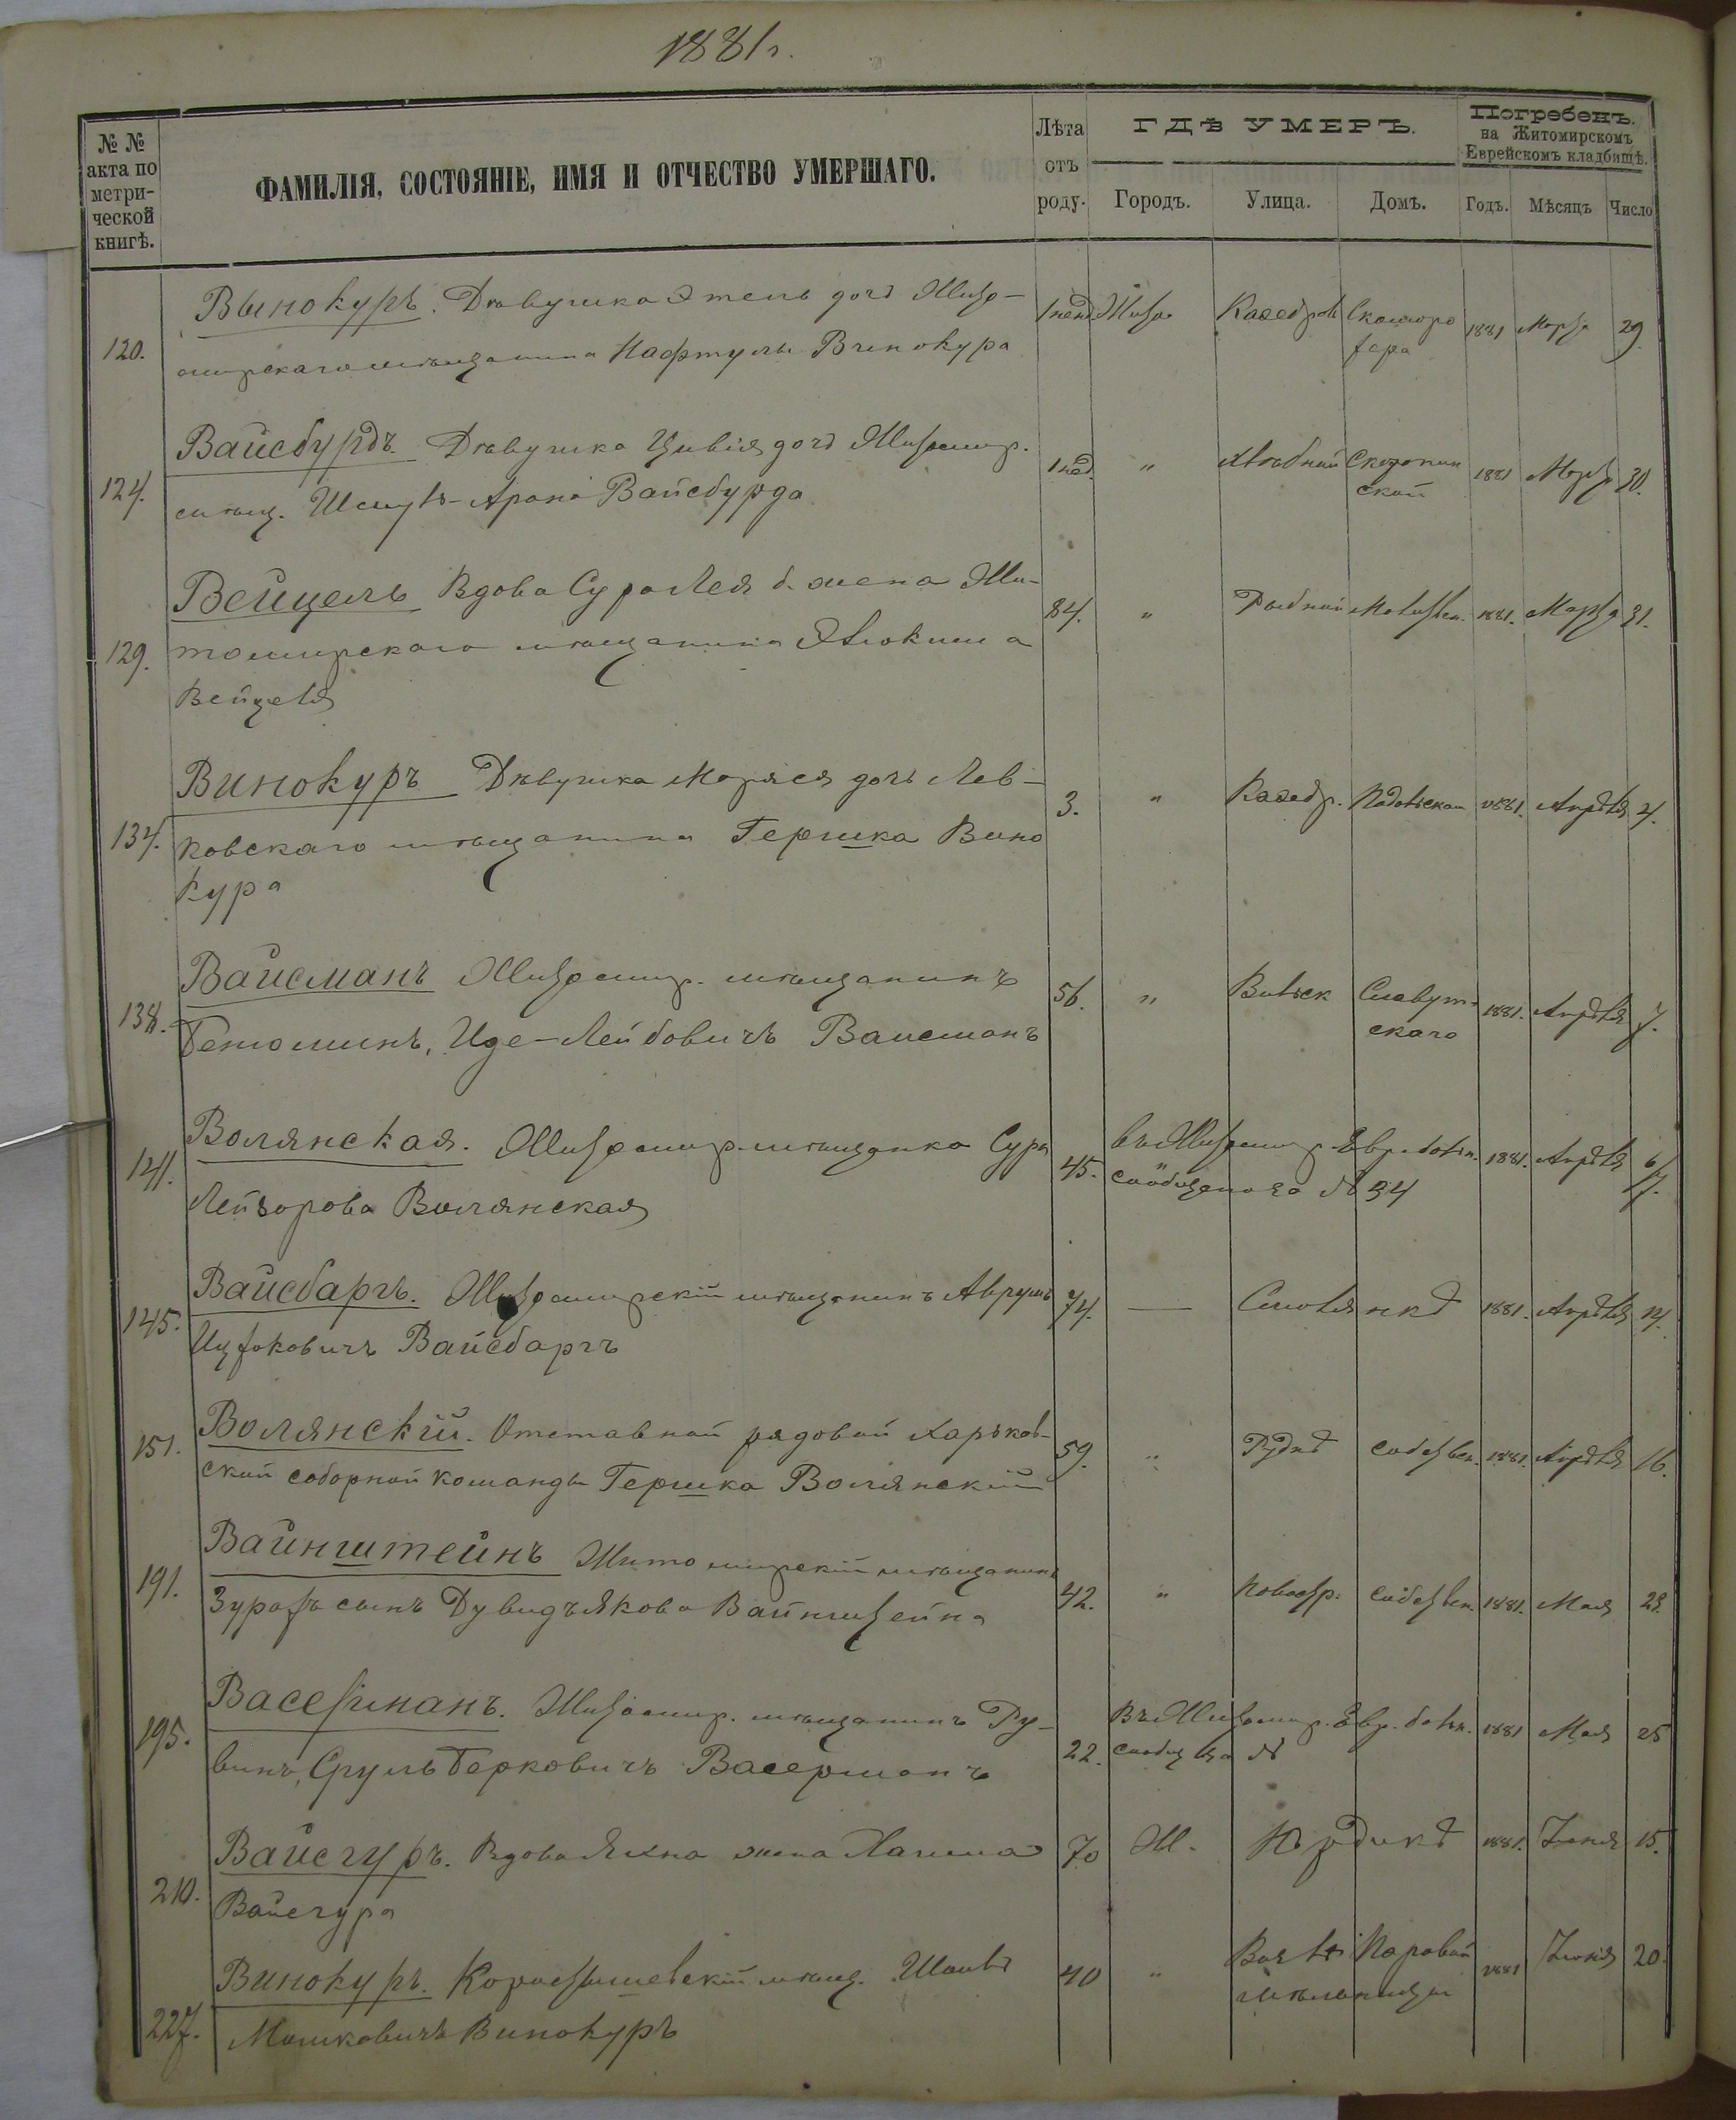 1881 г.
№ № акта по метрической книгѣ.
ФАМИЛІЯ, СОСТОЯНІЕ, ИМЯ И ОТЧЕСТВО УМЕРШАГО.
Лѣта отъ роду.
ГДѢ УМЕРЪ.
Погребенъ.
на Житомирскомъ
Еврейскомъ кладбищѣ.
Городъ. Улица. Домъ. Годъ. Мѣсяцъ Число
Винокуръ. Дѣвушка Этель дочь Жит-
120. омирскаго мѣщанина Нафтулы Винокура 1 нед. Жит. Каѳедров 1881 Марта 29
Вайсбурдъ. Дѣвушка Цивія дочь Житомир.
124. мѣщ. Шмуль-Арона Вайсбурда 1 нед. " Хлѣбной 1881 Марта 30.
Вейцель Вдова Сура Лея б. жена Жи-
129. томирскаго мѣщанина 84. " Рыбной 1881. Марта 31.
Вейцеля
Винокуръ Дѣвушка Маряся дочь Лев-
134. ковскаго мѣщанина Гершка Вино 3. " Каѳедр. 1881. Апрѣля 4.
кура
Вайсманъ Житомир. мѣщанинъ
138. Бенюминъ, Иде-Лейбовичъ Вайсманъ 56. " Вильск Славут-
скаго 1881. Апрѣля 7.
Волянская. Житомир. мѣщанка Сура въ Житомир. Евр. больн.
141. Лейзорова Волянская 45. сообщено за № 34 1881. Апрѣля 6/7.
Вайсбаргъ. Житомирскій мѣщанинъ Аврумъ
145. Ицковичъ Вайсбаргъ 74. — Смолянкѣ 1881. Апрѣля 14.
Волянскій. Отставной рядовой Харьков-
151. ской соборной команды Гершка Волянскій 59. " Руднѣ собствен. 1881. Апрѣля 16.
Вайнштейнъ Житомирскій мѣщанинъ
191. сынъ Дувидъ Якова Вайнштейна 42. " собствен. 1881. Мая 23.
Васерманъ. Житомир. мѣщанинъ Ру- Въ Житомир. Евр. больн.
195. винъ, Сруль Берковичъ Васерманъ 22. № 1881 Мая 25
Вайсгуръ. Вдова Яхна жена Хаима 70 Ж. 1881. Іюня 15.
210. Вайсгура
Винокуръ. Коростышевскій мѣщ. 40 " Паровой
мѣльницы 1881 Іюня 20.
227. Мошковичъ Винокуръ